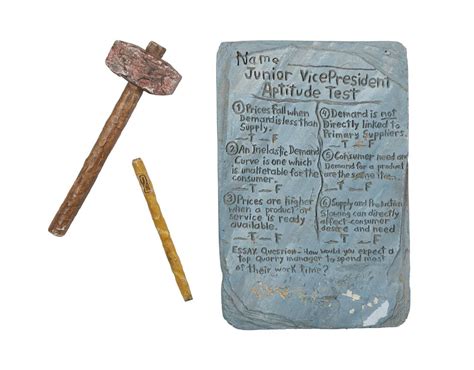 Name
Junior VicePresident
Aptitude Test
① Prices Fall when
Demand is less than
Supply.
_T _F
② An Inelastic Demand
Curve is one which
is for the
consumer.
_T _F
③ Prices are higher
when a product or
service is ready
available.
_T _F
④ Demand is not
Directly linked to
Primary Suppliers.
_T _F
⑤ Consumer need and
Demand for a product
are the same
_T _F
⑥ Supply and Production
can directly
affect consumer
desire and need
_T _F
Essay Question: How would you expect a
top Quarry manager to spend most
of their work time?